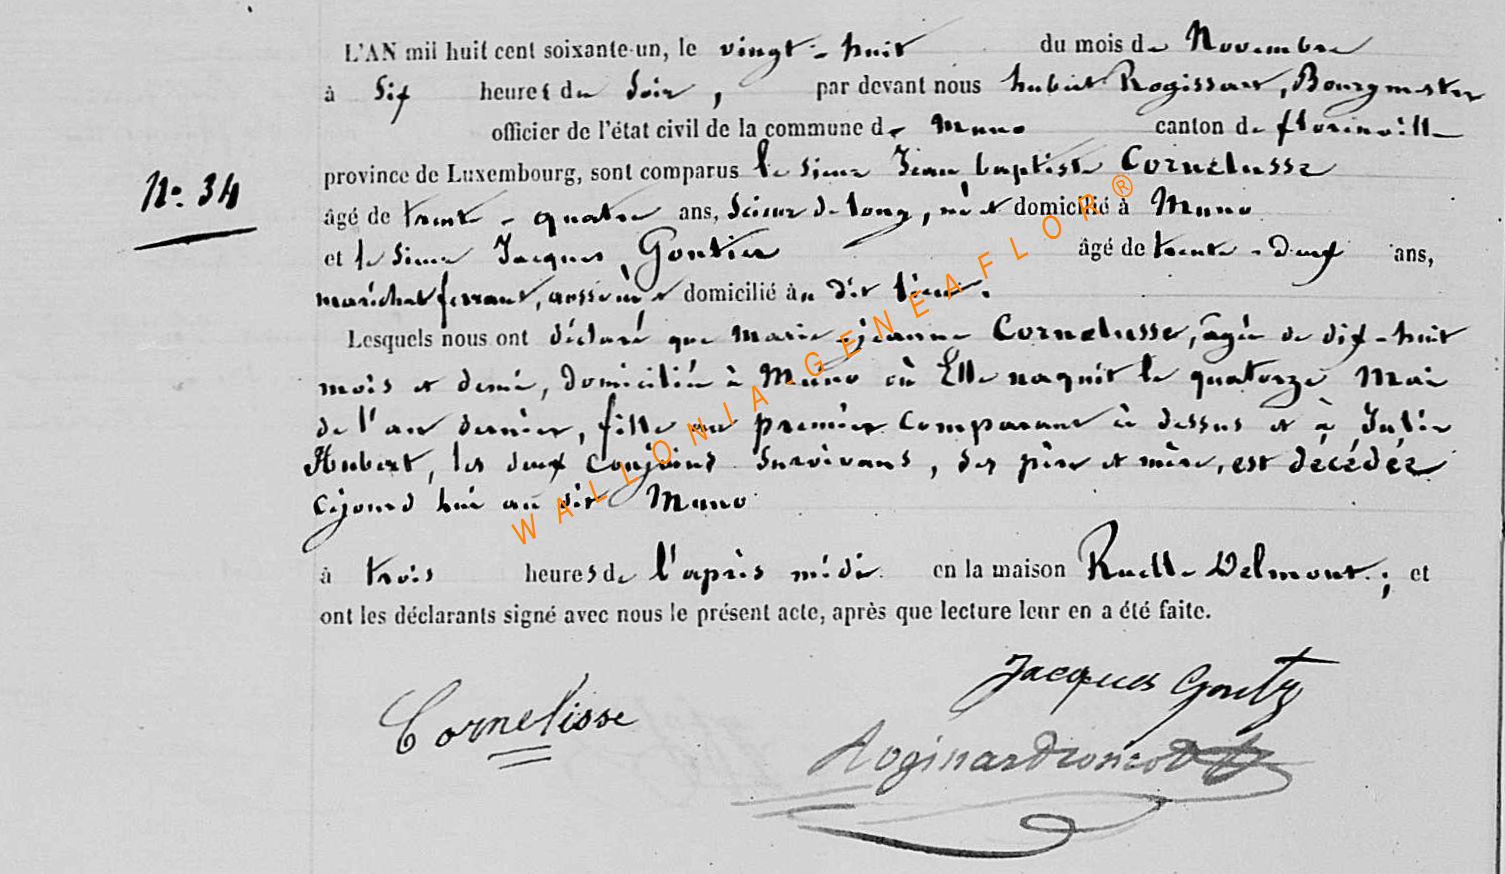 L'AN mil huit cent soixante-un, le vingt-huit du mois de Novembre
à Six heures du Soir, par devant nous hubert Rogissart, Bourgmestre
officier de l'état civil de la commune de Muno canton de florenville
N° 34
province de Luxembourg, sont comparus le sieur Jean baptiste Cornelusse
âgé de trente-quatre ans, Scieur de long, né et domicilié à Muno
et le sieur Jacques Gontier âgé de trente-deux ans,
maréchal ferrant, aussi né et domicilié au dit lieu.
Lesquels nous ont déclaré que Marie-jeanne Cornelusse, âgée de dix-huit
mois et demi, domiciliée à Muno où Elle naquit le quatorze Mai
de l'an dernier, fille au premier comparant ci dessus et à Julie
Hubert, les deux conjoins Survivans, Ses père et mère, est décédée
cejourd hui au dit Muno
à trois heures de l'après midi en la maison Ruelle Delmont.; et
ont les déclarants signé avec nous le présent acte, après que lecture leur en a été faite.
Jacques
Cornelisse
WALLONIA-GENEAFLOR®